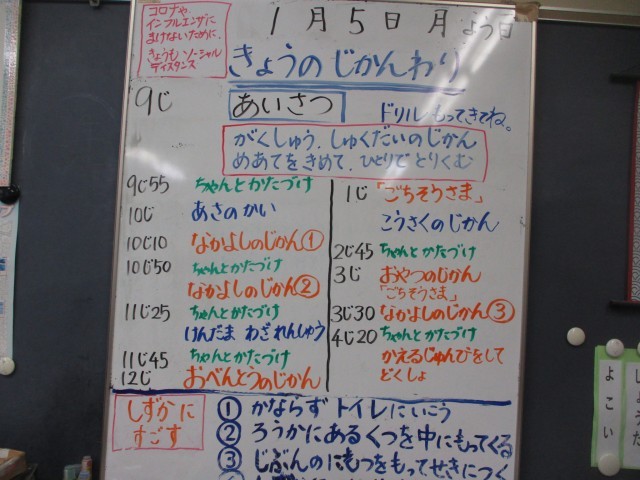 コロナや
インフルエンザに
まけないために、
きょうも ソーシャル
ディスタンス
1月5日 月ょう日
きょうのじかんわり
9じ あいさつ ドリルもってきてね。
がくしゅう、しゅくだいのじかん
めあてをきめて、ひとりで とりくむ
9じ55 ちゃんとかたづけ
10じ あさのかい
10じ10 なかよしのじかん①
10じ50 ちゃんとかたづけ
なかよしのじかん②
11じ25 ちゃんとかたづけ
けんだま わざれんしゅう
11じ45 ちゃんとかたづけ
12じ おべんとうのじかん
1じ 「ごちそうさま」
こうさくのじかん
2じ45 ちゃんとかたづけ
3じ おやつのじかん
「ごちそうさま」
3じ30 なかよしのじかん③
4じ20 ちゃんとかたづけ
かえるじゅんびをして
どくしょ
しずかに
すごす
① かならず トイレにいこう
② ろうかにあるくつを中にもってくる
③ じぶんのにもつをもってせきにつく
よこい